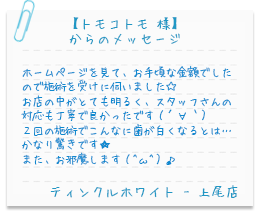 【トモコトモ 様】
からのメッセージ
ホームページを見て、お手頃な金額でした
ので施術を受けに伺いました☆
お店の中がとても明るく、スタッフさんの
対応も丁寧で良かったです(´∀｀)
2回の施術でこんなに歯が白くなるとは…
かなり驚きです★
また、お邪魔します(^ω^)♪
ティンクルホワイト - 上尾店